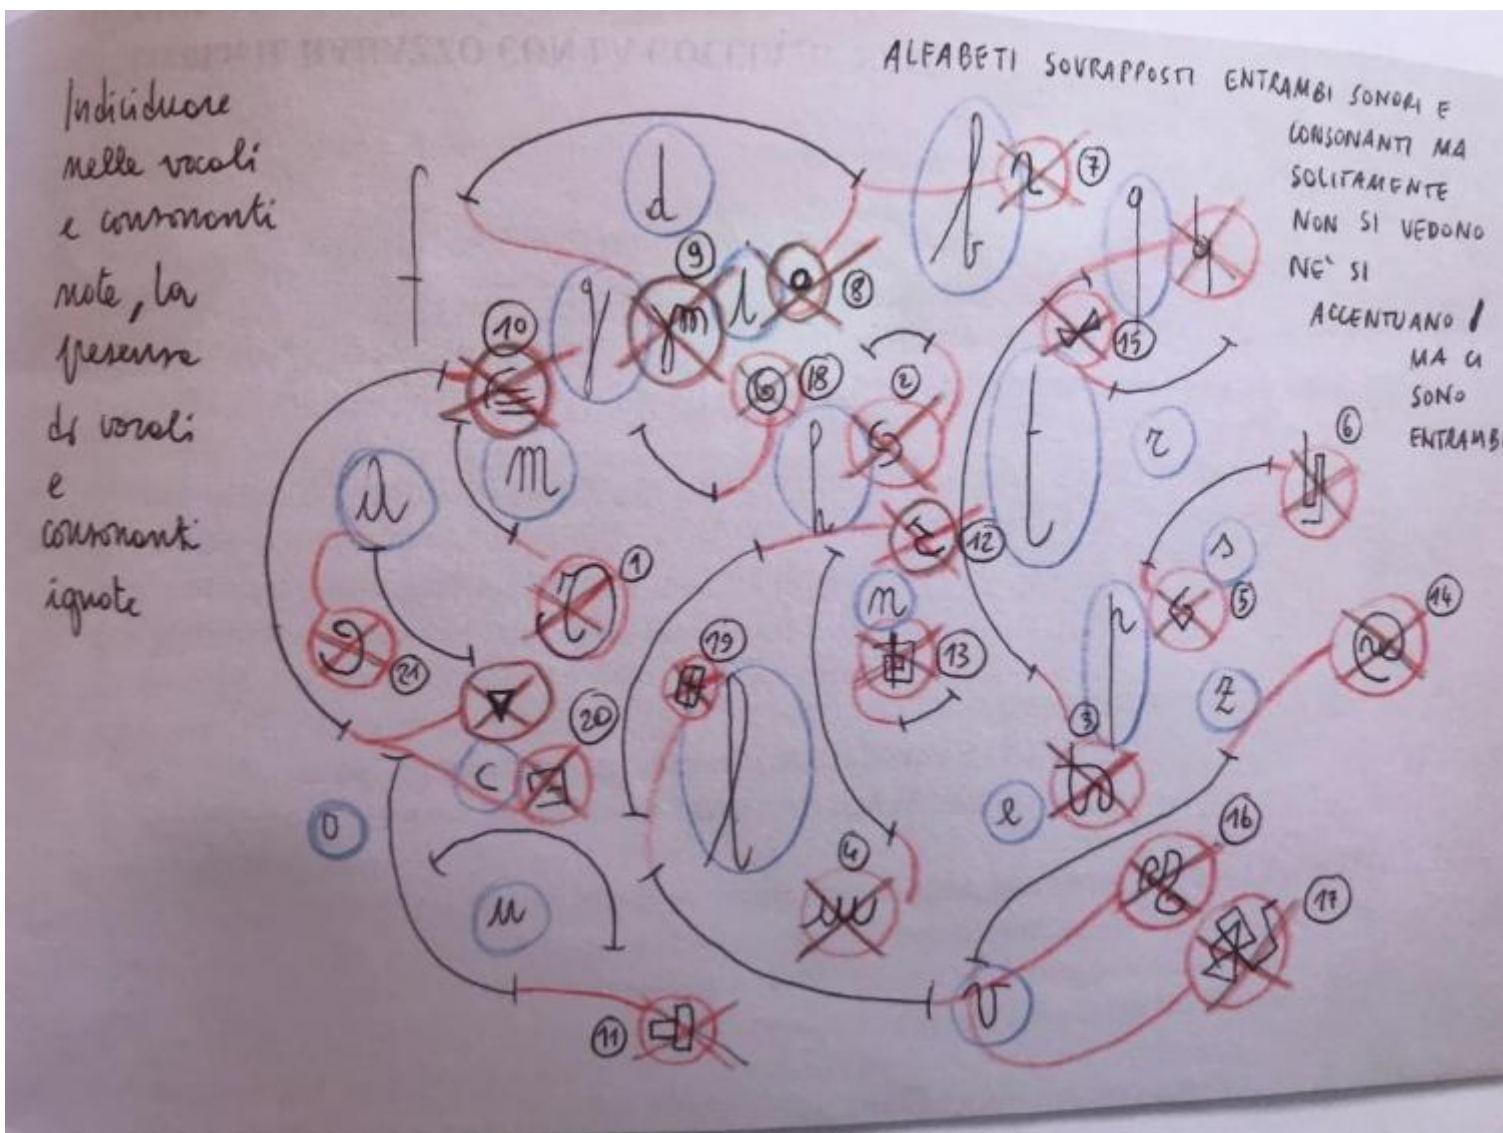 Individuare
nelle vocali
e consonanti
note, la
presenza
di vocali
e
consonanti
ignote
ALFABETI SOVRAPPOSTI ENTRAMBI SONORI E
CONSONANTI MA
SOLITAMENTE
NON SI VEDONO
NE' SI
ACCENTUANO
MA CI
SONO
ENTRAMBI
d
b
7
f
9
l
8
q
10
15
18
2
t
r
6
m
h
12
s
1
n
5
14
19
13
p
z
21
3
20
c
e
o
4
16
u
17
v
11